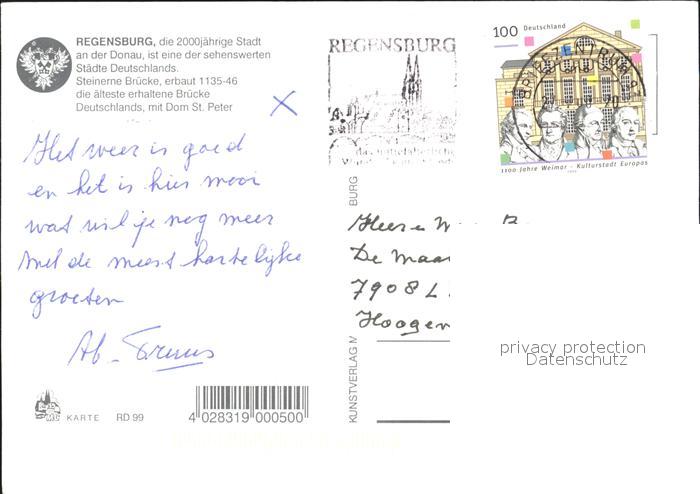 REGENSBURG, die 2000jährige Stadt
an der Donau, ist eine der sehenswerten
Städte Deutschlands.
Steinerne Brücke, erbaut 1135-46
die älteste erhaltene Brücke
Deutschlands, mit Dom St. Peter
Het weer is goed
en het is hier mooi
wat wil je nog meer
Met de meest hartelijke
groeten
Ab - Truus
KARTE RD 99
4 028319 000500
REGENSBURG
100 Deutschland
BRIEFZENTRUM
1100 Jahre Weimar - Kulturstadt Europas
KUNSTVERLAG M
BURG
Heer
De Maar
7908 L
Hoogen
privacy protection
Datenschutz